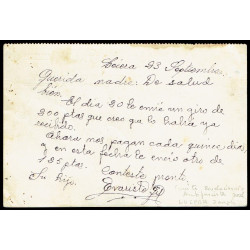 23 Septiembre
Querida madre: De salud
bien.
El día 20 le envié un giro de
200 ptas que creo que lo habrá ya
recibido.
Ahora nos pagan cada quince días
y en esta fecha le envío otro de
125 ptas.
Conteste pront
Su hijo.
Evaristo